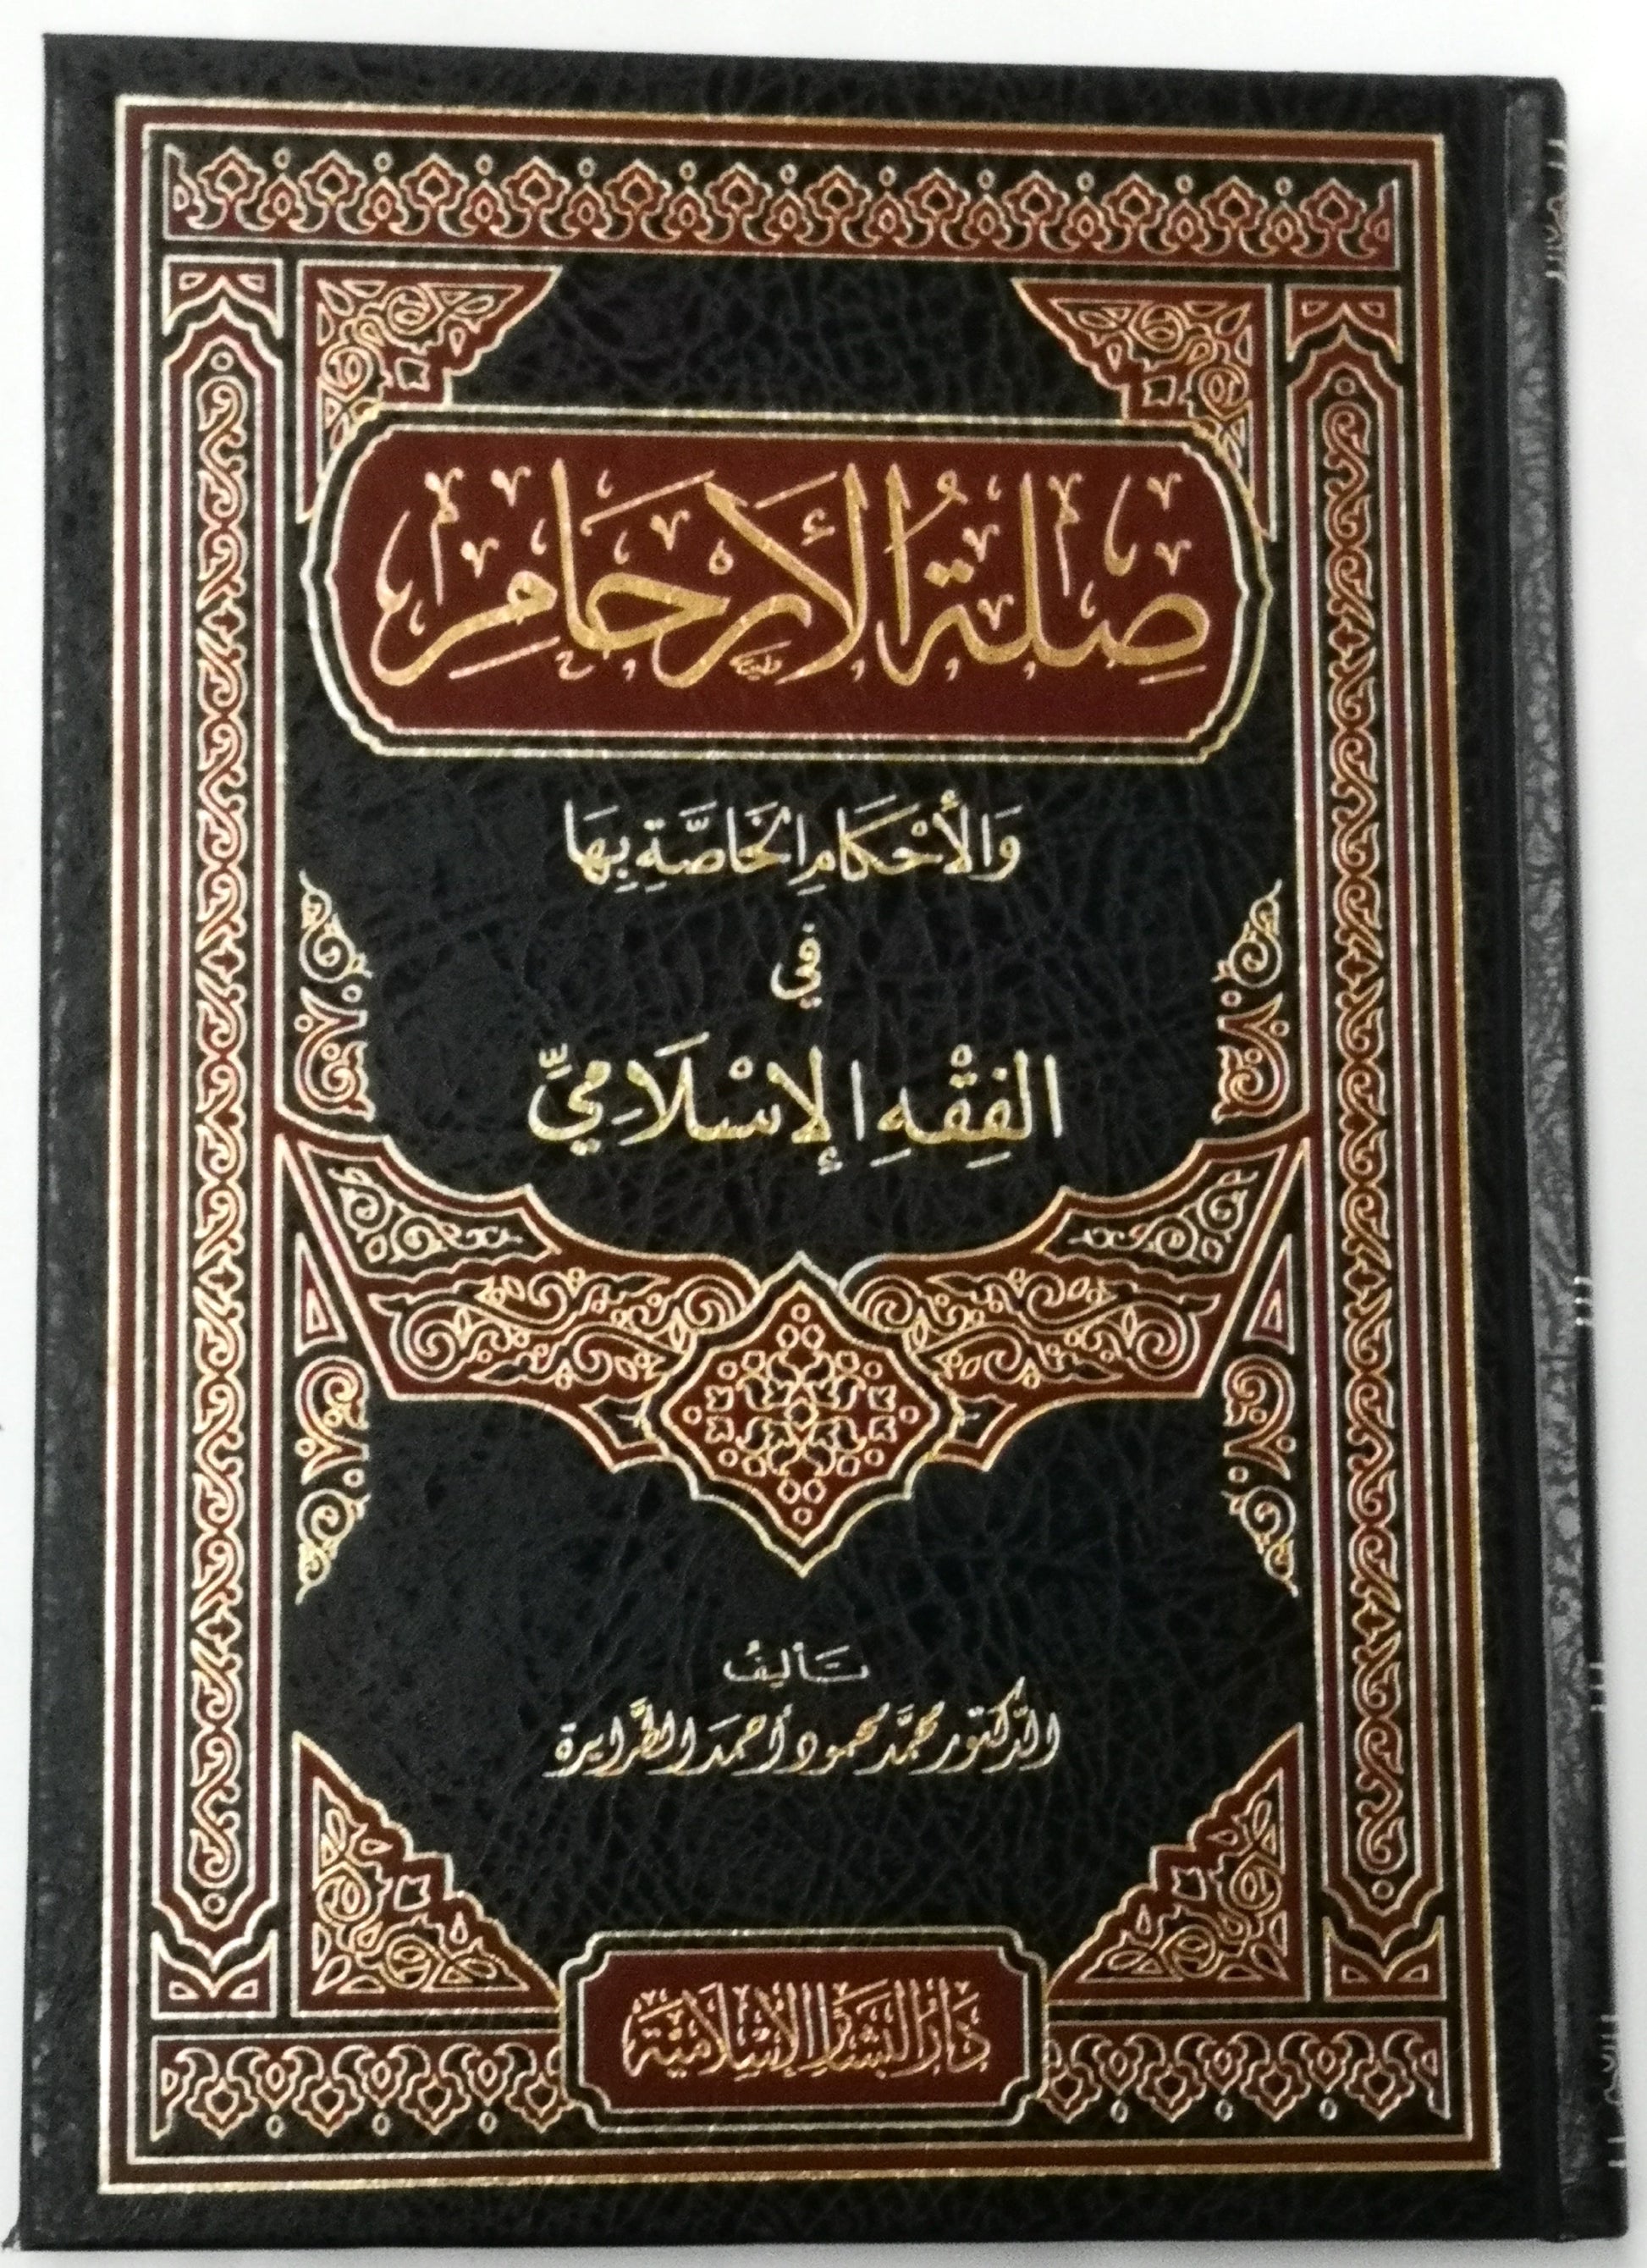 صِلَةُ الأَرْحَامِ
وَالأَحْكَامِ الخَاصَّةِ بِهَا
في
الفِقْهِ الإِسْلَامِيِّ
تأليف
الدّكتور محمَّد محمود أحمد الطَّرايرة
دَارُ البَشَائِرِ الإِسْلَامِيَّة